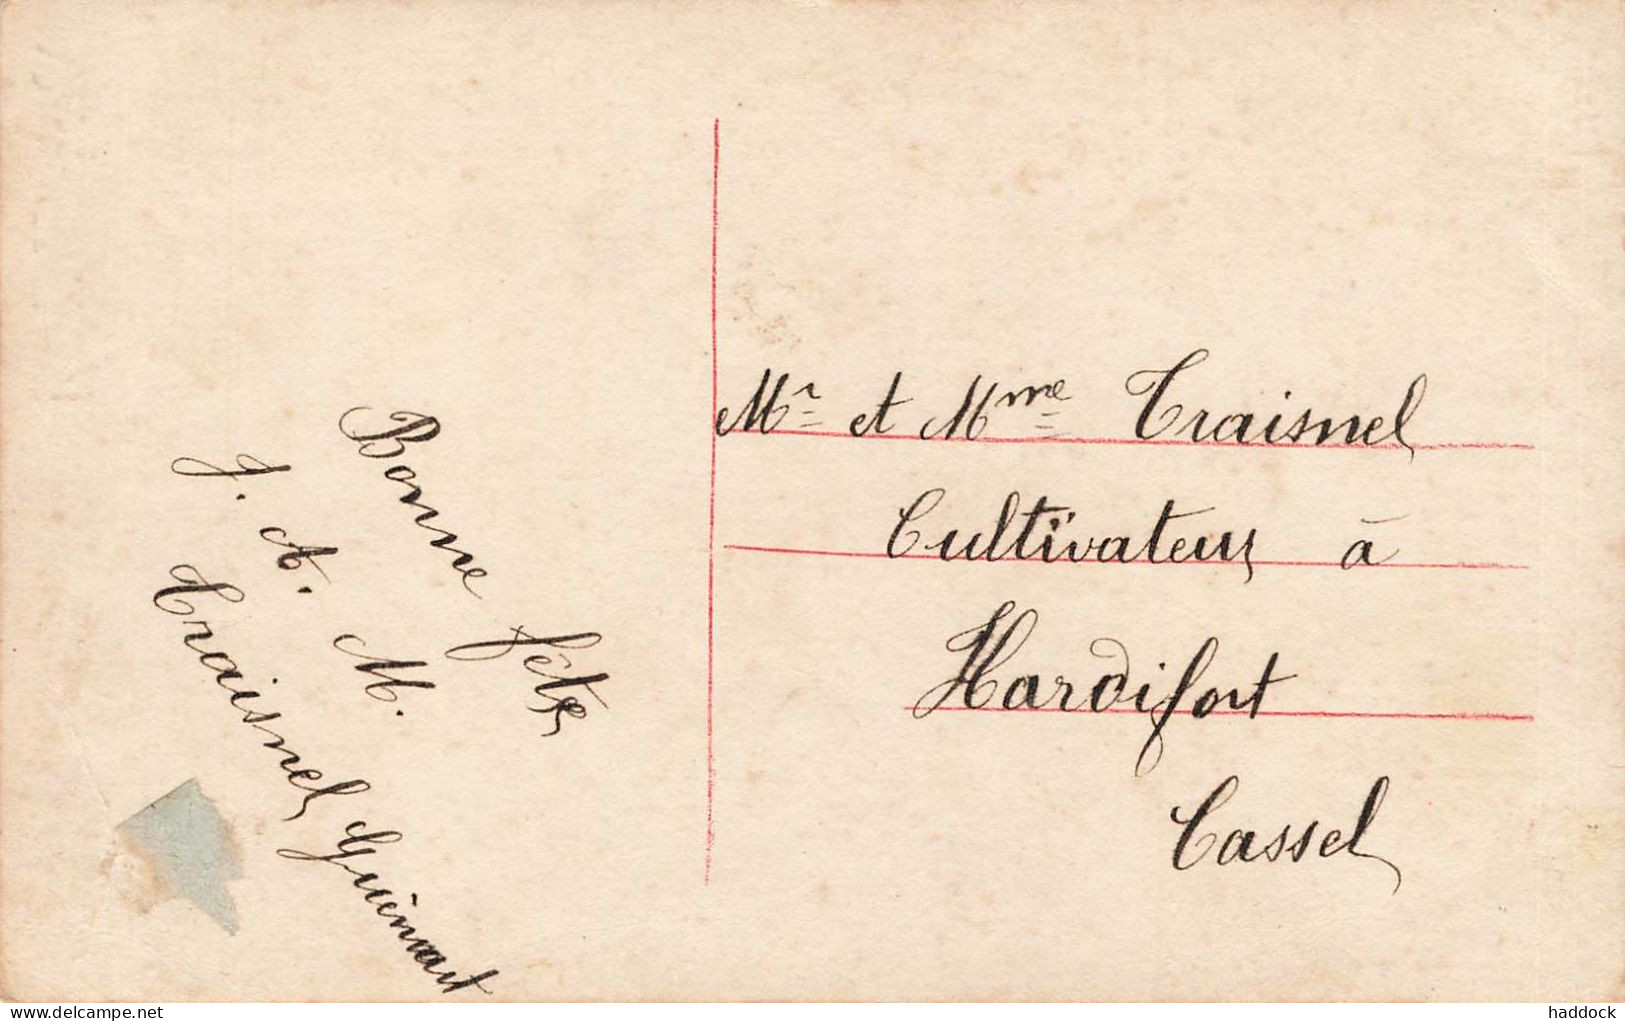 Bonne fête
J. A. M.
Traisnel Guénart
Mr et Mme Traisnel
Cultivateur à
Hardifort
Cassel
www.delcampe.net
haddock